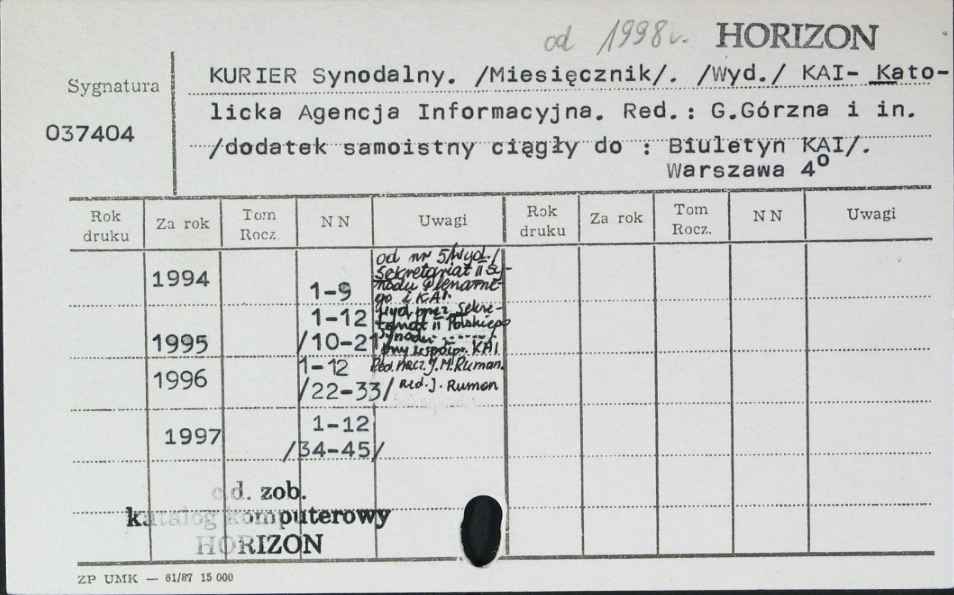 od 1998r. HORIZON
Sygnatura
037404
KURIER Synodalny. /Miesięcznik/. /Wyd./ KAI- Kato-
licka Agencja Informacyjna. Red.: G.Górzna i in.
/dodatek samoistny ciągły do : Biuletyn KAI/.
Warszawa 4°
Rok druku Za rok Tom Rocz. N N Uwagi Rok druku Za rok Tom Rocz. N N Uwagi
1994 1-9
od nr 5/Wyd./
Sekretariat II Sy-
nodu Plenarne-
go i KAI.
1995 1-12
/10-21/
Wyd. przez Sekre-
tariat II Polskiego
Synodu
przy współpr. KAI
1996 1-12
/22-33/
Red. nacz. J.M. Ruman.
Red. J. Ruman
1997 1-12
/34-45/
c.d. zob.
katalog komputerowy
HORIZON
ZP UMK — 61/87 15 000